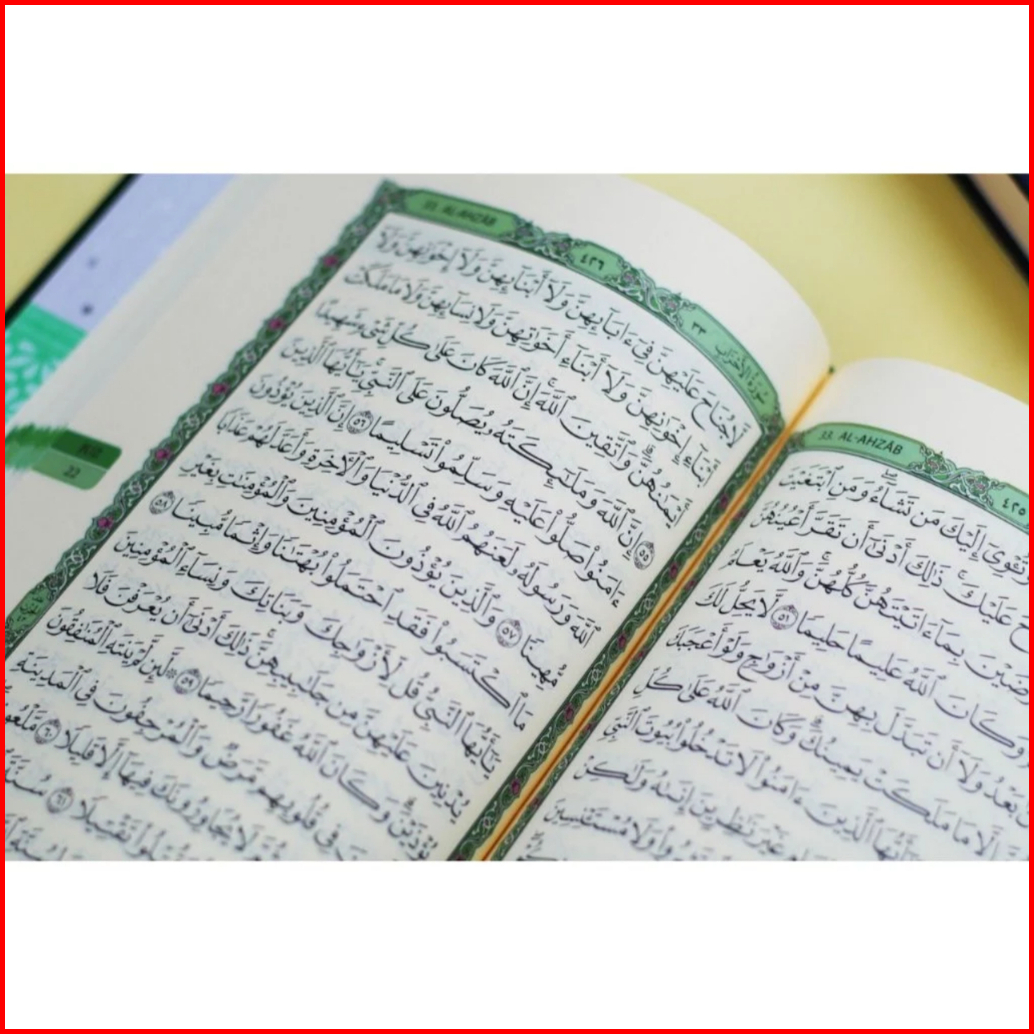 33. AL-AHZĀB
٤٢٥
تُـْٔوِىٓ إِلَيْكَ مَن تَشَآءُ وَمَنِ ٱبْتَغَيْتَ
عَلَيْكَ ذَٰلِكَ أَدْنَىٰٓ أَن تَقَرَّ أَعْيُنُهُنَّ
بِمَآ ءَاتَيْتَهُنَّ كُلُّهُنَّ وَٱللَّهُ يَعْلَمُ
وَكَانَ ٱللَّهُ عَلِيمًا حَلِيمًا ٥١ لَّا يَحِلُّ لَكَ
بَعْدُ وَلَآ أَن تَبَدَّلَ بِهِنَّ مِنْ أَزْوَٰجٍ وَلَوْ أَعْجَبَكَ
إِلَّا مَا مَلَكَتْ يَمِينُكَ وَكَانَ ٱللَّهُ عَلَىٰ كُلِّ
ٱلَّذِينَ ءَامَنُوا۟ لَا تَدْخُلُوا۟ بُيُوتَ ٱلنَّبِىِّ
غَيْرَ نَٰظِرِينَ إِنَىٰهُ وَلَٰكِنْ
وَلَا مُسْتَـْٔنِسِينَ
33. AL-AHZĀB
٤٢٦
٣٣ سُورَةُ الأَحْزَابِ
لَّا جُنَاحَ عَلَيْهِنَّ فِىٓ ءَابَآئِهِنَّ وَلَآ أَبْنَآئِهِنَّ وَلَآ إِخْوَٰنِهِنَّ وَلَآ
أَبْنَآءِ إِخْوَٰنِهِنَّ وَلَآ أَبْنَآءِ أَخَوَٰتِهِنَّ وَلَا نِسَآئِهِنَّ وَلَا مَا مَلَكَتْ
أَيْمَٰنُهُنَّ وَٱتَّقِينَ ٱللَّهَ إِنَّ ٱللَّهَ كَانَ عَلَىٰ كُلِّ شَىْءٍ شَهِيدًا
٥٥ إِنَّ ٱللَّهَ وَمَلَٰٓئِكَتَهُۥ يُصَلُّونَ عَلَى ٱلنَّبِىِّ يَٰٓأَيُّهَا ٱلَّذِينَ
ءَامَنُوا۟ صَلُّوا۟ عَلَيْهِ وَسَلِّمُوا۟ تَسْلِيمًا ٥٦ إِنَّ ٱلَّذِينَ يُؤْذُونَ
ٱللَّهَ وَرَسُولَهُۥ لَعَنَهُمُ ٱللَّهُ فِى ٱلدُّنْيَا وَٱلْءَاخِرَةِ وَأَعَدَّ لَهُمْ عَذَابًا
مُّهِينًا ٥٧ وَٱلَّذِينَ يُؤْذُونَ ٱلْمُؤْمِنِينَ وَٱلْمُؤْمِنَٰتِ بِغَيْرِ
مَا ٱكْتَسَبُوا۟ فَقَدِ ٱحْتَمَلُوا۟ بُهْتَٰنًا وَإِثْمًا مُّبِينًا ٥٨
يَٰٓأَيُّهَا ٱلنَّبِىُّ قُل لِّأَزْوَٰجِكَ وَبَنَاتِكَ وَنِسَآءِ ٱلْمُؤْمِنِينَ
يُدْنِينَ عَلَيْهِنَّ مِن جَلَٰبِيبِهِنَّ ذَٰلِكَ أَدْنَىٰٓ أَن يُعْرَفْنَ فَلَا
يُؤْذَيْنَ وَكَانَ ٱللَّهُ غَفُورًا رَّحِيمًا ٥٩ لَّئِن لَّمْ يَنتَهِ ٱلْمُنَٰفِقُونَ
فِى قُلُوبِهِم مَّرَضٌ وَٱلْمُرْجِفُونَ فِى ٱلْمَدِينَةِ
لَا يُجَاوِرُونَكَ فِيهَآ إِلَّا قَلِيلًا ٦٠
تَقْتِيلًا ٦١ سُنَّةَ
22